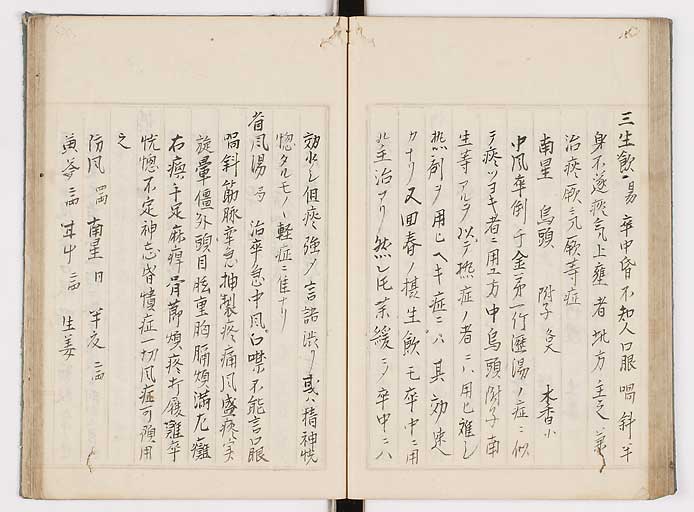 三生飲 易 卒中昏不知人口眼喎斜半
身不遂痰気上壅者此方主之兼
治痰厥気厥等症
南星 烏頭 附子 木香
中風卒倒 ノ症ニ似
テ痰ツヨキ者ニ用ユ方中烏頭附子南
生等アルヲ以テ熱症ノ者ニハ用ヒ難シ
熱剤ヲ用ヒヘキ症ニハ其効速
カナリ又回春ノ 生飲モ卒中ニ用
ル主治アリ然レ 緩ニシ卒中ニハ
効 シ但痰強ク言語渋リ或ハ精神恍
惚タルモノノ軽症ニ佳ナリ
風湯 治卒急中風口噤不能言口眼
喎斜筋脉攣急抽掣疼痛風盛痰実
旋暈僵仆頭目眩重胸膈煩満左癱
右瘓手足麻痺骨節煩疼歩履難辛
恍惚不定神志昏憒症一切風症可預用
之
防風 南星 半夜
黄芩 甘中 生姜